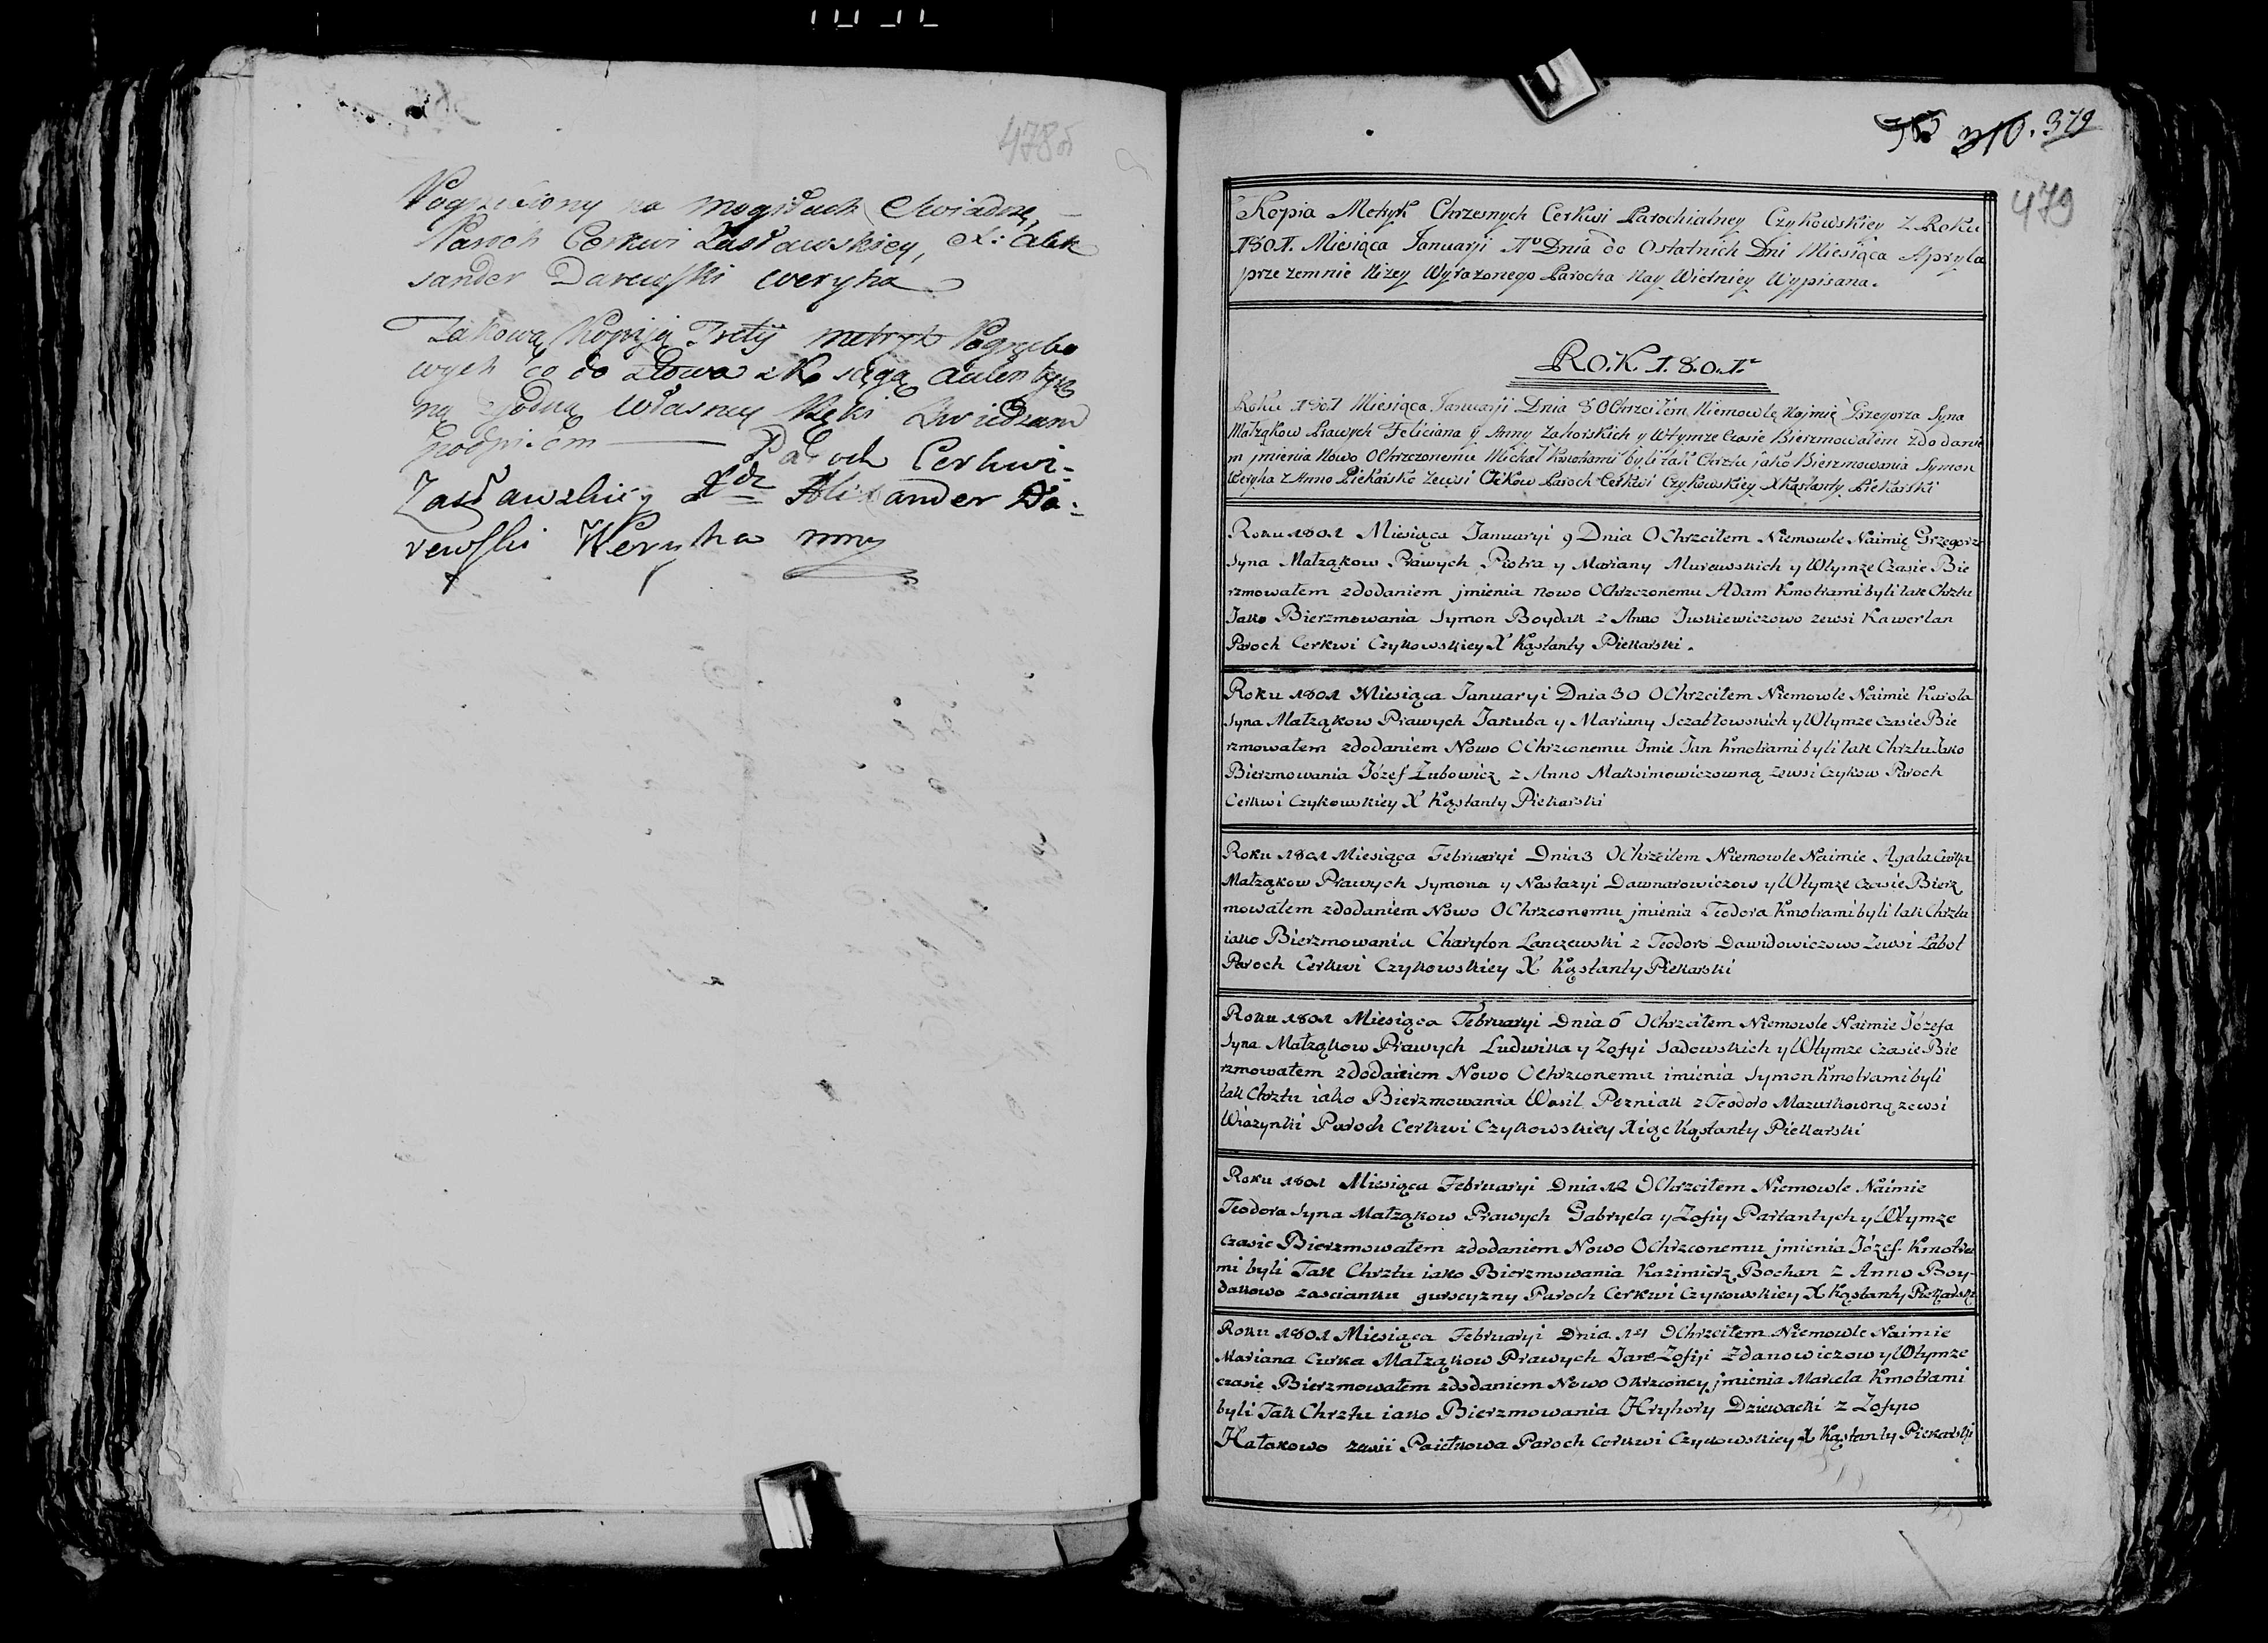 478об
Pogrzebiony na mogiłach Swiadczę
Paroch Cerkwi Zasławskiey, X: Alek
sander Darewski Weryha
Takową Kopiją Tretij Metryk Pogrzebo
wych co do słowa z Księgą Autentycz
ną zgodną własney Ręki Zwiedzam
podpisem Paroch Cerkwi
Zasławskiey Xdz Alixander Da:
rewski Weryha mmp
310. 379
479
Kopia Metryk Chrzesnych Cerkwi Parochialney Czykowskiey Z Roku
1801. Miesiąca Januarji 1º Dnia do Ostatnich Dni Miesiąca Apryla
prze zemnie Niżey Wyrażonego Parocha Nay Wierniey Wypisana.
ROK 1801
Roku 1801 Miesiąca Januarji Dnia 8 Ochrzciłem Niemowlę Najmię Grzegorza Syna
Małżąkow Prawych Feliciana y Anny Zahorskich y Wtymże Czasie Bierzmowałem zdodanie
m jmienia Nowo Ochrzczonemu Michał Kmotrami byli tak Chrztu jako Bierzmowania Symon
Weryha z Anno Piekarsko Zewsi Czkow Paroch Cerkwi Czykowskiey X Kąstanty Piekarski
Roku 1801 Miesiąca Januaryi 9 Dnia Ochrzciłem Niemowle Naimię Grzegorz
Syna Małżąkow Prawych Piotra y Maryany Murawskich y Wtymże Czasie Bie
rzmowałem zdodaniem jmienia Nowo Ochrzczonemu Adam Kmotrami byli tak Chrztu
Jako Bierzmowania Symon Boydak z Anno Juskiewiczowo zewsi Kawerlan
Paroch Cerkwi Czykowskiey X Kąstanty Piekarski.
Roku 1801 Miesiąca Januaryi Dnia 30 Ochrzciłem Niemowle Naimie Karola
Syna Małżąkow Prawych Jakuba y Mariany Sczabłowskich y Wtymże Czasie Bie
rzmowałem zdodaniem Nowo Ochrzconemu Jmie Jan Kmotrami byli tak Chrztu Jako
Bierzmowania Józef Zubowicz z Anno Maksimowiczowną Zewsi Czykow Paroch
Cerkwi Czykowskiey X Kąstanty Piekarski
Roku 1801 Miesiąca Februaryi Dnia 3 Ochrzciłem Niemowle Naimie Agata Curka
Małżąkow Prawych Symona y Nastazyi Dawnarowiczow y Wtymże Czasie Bierz
mowałem zdodaniem Nowo Ochrzconemu jmienia Teodora Kmotrami byli tak Chrztu
iako Bierzmowania Charyton Lanczewski z Teodoro Dawidowiczowo Zewsi Łabot
Paroch Cerkwi Czykowskiey X Kąstanty Piekarski
Roku 1801 Miesiąca Februaryi Dnia 6 Ochrzciłem Niemowle Naimie Józefa
Syna Małżąkow Prawych Ludwika y Zofyi Sadowskich y Wtymże Czasie Bie
rzmowałem zdodaniem Nowo Ochrzconemu imienia Symon Kmotrami byli
tak Chrztu iako Bierzmowania Wasil Pozniak z Teodoro Mazurkowną zewsi
Wiazynki Paroch Cerkwi Czykowskiey Xiąc Kąstanty Piekarski
Roku 1801 Miesiąca Februaryi Dnia 12 Ochrzciłem Niemowle Naimie
Teodora Syna Małżąkow Prawych Gabryela y Zofiy Partantych y Wtymże
Czasie Bierzmowałem zdodaniem Nowo Ochrzconemu jmienia Józef Kmotra
mi byli Tak Chrztu iako Bierzmowania Kazimierz Bochan z Anno Boy-
dakowo zascianku gurscyzny Paroch Cerkwi Czykowskiey X Kąstanty Piekarski
Roku 1801 Miesiąca Februaryi Dnia 14 Ochrzciłem Niemowle Naimie
Mariana Curka Małżąkow Prawych Jana Zofiji Zdanowiczow y Wtymże
czasie Bierzmowałem zdodaniem Nowo Okrzconey jmienia Marcela Kmotrami
byli Tak Chrztu iako Bierzmowania Hryhory Dziewacki z Zofyio
Hatakowo zewsi Paietkowa Paroch Cerkwi Czykowskiey X Kąstanty Piekarski